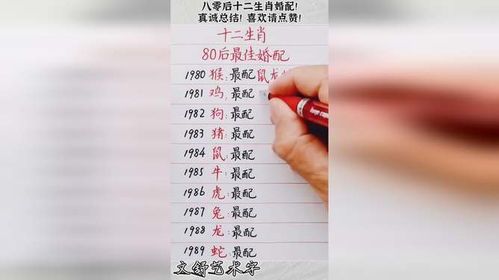 八零后十二生肖婚配!
真诚总结! 喜欢请点赞!
十二生肖
80后最佳婚配
1980 猴:最配鼠龙
1981 鸡:最配
1982 狗:最配
1983 猪:最配
1984 鼠:最配
1985 牛:最配
1986 虎:最配
1987 兔:最配
1988 龙:最配
1989 蛇:最配
文舒艺术字